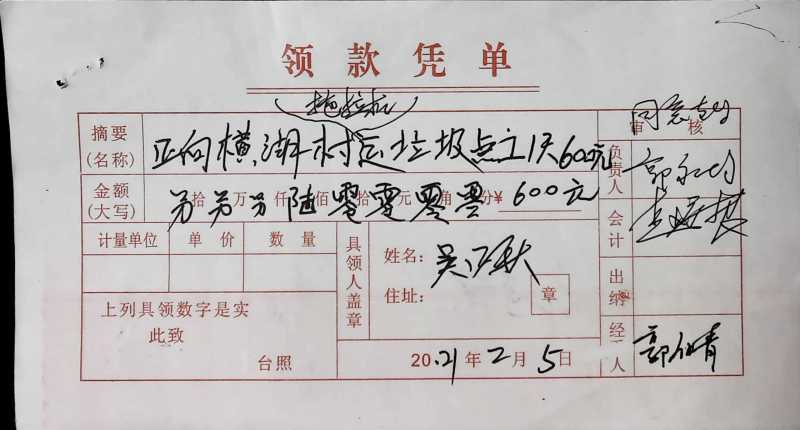 领款凭单
拖拉机
同意
审核
摘要(名称) 正向横湖村运垃圾点工1天600元
负责人
金额(大写) 另拾另万另仟陆佰零拾零元零角零分¥600元
会计
计量单位 单价 数量
具领人盖章
姓名: 吴
住址: 章
出纳
上列具领数字是实
此致
台照
2021年2月5日
经 人 郭 青